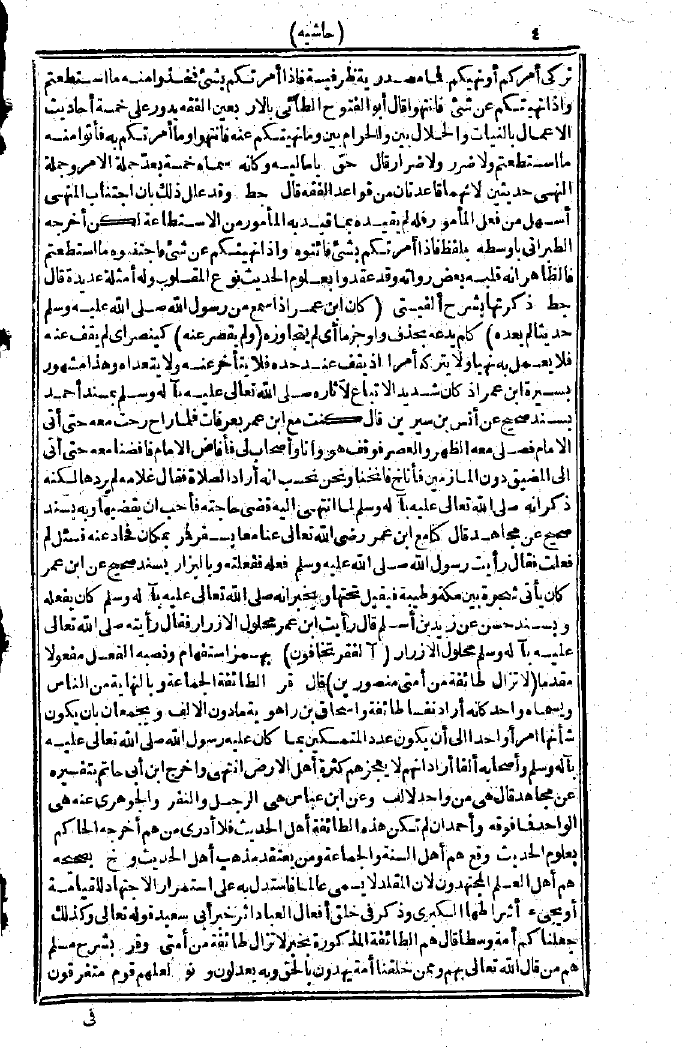 ٤ (حاشيه)
تركى أمركم أونهيكم فما مصدرية ظرفية فاذا أمرتكم بشئ فخذوا منه ما استطعتم
واذا نهيتكم عن شئ فانتهوا قال أبو الفتوح الطائى بالاربعين الفقه يدور على خمسة أحاديث
الاعمال بالنيات والحلال بين والحرام بين وما نهيتكم عنه فانتهوا وما أمرتكم به فأتوا منه
ما استطعتم ولا ضرر ولا ضرار قال حق ياماليه وكانه سماه خمسة بعد جملة الامر وجملة
النهى حديثين لانهما قاعدتان من قواعد الفقه قال حط وقد علل ذلك بان اجتناب المنهى
أسهل من فعل المأمور فله لم يقيده بما قيد به المأمور من الاستطاعة لكن أخرجه
الطبرانى باوسطه بلفظ فاذا أمرتكم بشئ فائتوه واذا نهيتكم عن شئ فاجتنبوه ما استطعتم
فالظاهر انه قلبه بعض رواته وقد عقدوا بعلوم الحديث نوع المقلوب وله أمثلة عديدة قال
حط ذكرتها بشرح ألفيتى (كان ابن عمر اذا سمع من رسول الله صلى الله عليه وسلم
حديثا لم يعده) كام يدعه بحذف واو جزما أى لم يتجاوزه (ولم يقصر عنه) كينصر أى لم يقف عنه
فلا يعمل به نهيا ولا يتركه أمرا اذ يقف عند حده فلا يتأخر عنه ولا يتعداه وهذا مشهور
بسيرة ابن عمر اذ كان شديد الاتباع لآثاره صلى الله تعالى عليه بآله وسلم بمسند أحمد
بسند صحيح عن أنس بن سيرين قال كنت مع ابن عمر بعرفات فلما راح رحت معه حتى أتى
الامام فصلى معه الظهر والعصر فوقف هو وأنا وأصحاب لى فأفاض الامام فافضنا معه حتى أتى
الى المضيق دون المأزمين فأناخ فانخنا ونحن نحسب انه أراد الصلاة فقال غلامه لم يردها لكنه
ذكر انه صلى الله تعالى عليه بآله وسلم لما انتهى اليه قضى حاجته فأحب ان يقضيها وبه بسند
صحيح عن مجاهد قال كنا مع ابن عمر رضى الله تعالى عنا معا بسفر فمر بمكان فحاد عنه فسئل لم
فعلت فقال رأيت رسول الله صلى الله عليه وسلم فعله ففعلته وبالبزار بسند صحيح عن ابن عمر
كان يأتى شجرة بين مكة وطيبة فيقيل تحتها ويخبر انه صلى الله تعالى عليه بآله وسلم كان يفعله
وبسند حسن عن زيد بن أسلم قال رأيت ابن عمر محلول الازرار فقال رأيته صلى الله تعالى
عليه بآله وسلم محلول الازرار (آلفقر تخافون) بهمز استفهام ونصبه الفعل مفعولا
مقدما (لا تزال طائفة من أمتى منصورين) قال قر الطائفة الجماعة وبالنهاية من الناس
ويسماه واحد كانه أراد نفسا طائفة واسحاق بن راهوية ما دون الالف ويجمعان بان يكون
شأنها أمرا واحدا الى أن يكون عدد المتمسكين بما كان عليه رسول الله صلى الله تعالى عليه
بآله وسلم وأصحابه ألفا أراد انهم لا يعجزهم كثرة أهل الارض انتهى وأخرج ابن أبى حاتم بتفسيره
عن مجاهد قال هى من واحد لالف وعن ابن عباس هى الرجل والنفر والجوهرى عنه هى
الواحد فما فوقه وأحمد ان لم تكن هذه الطائفة أهل الحديث فلا أدرى من هم أخرجه الحاكم
بعلوم الحديث وقع هم أهل السنة والجماعة ومن يعتقد مذهب أهل الحديث وخ بصحيحه
هم أهل العلم المجتهدون لان المقلد لا يسمى عالما فاستدل به على استمرار الاجتهاد للقيامة
أو مجىء أشراطها الكبرى وذكر فى خلق أفعال العباد اثر خبر أبى سعيد قوله تعالى وكذلك
جعلناكم أمة وسطا قال هم الطائفة المذكورة بخبر لا تزال طائفة من أمتى وقر بشرح مسلم
هم من قال الله تعالى بهم وممن خلقنا أمة يهدون بالحق وبه يعدلون و نو لعلهم قوم متفرقون
فى